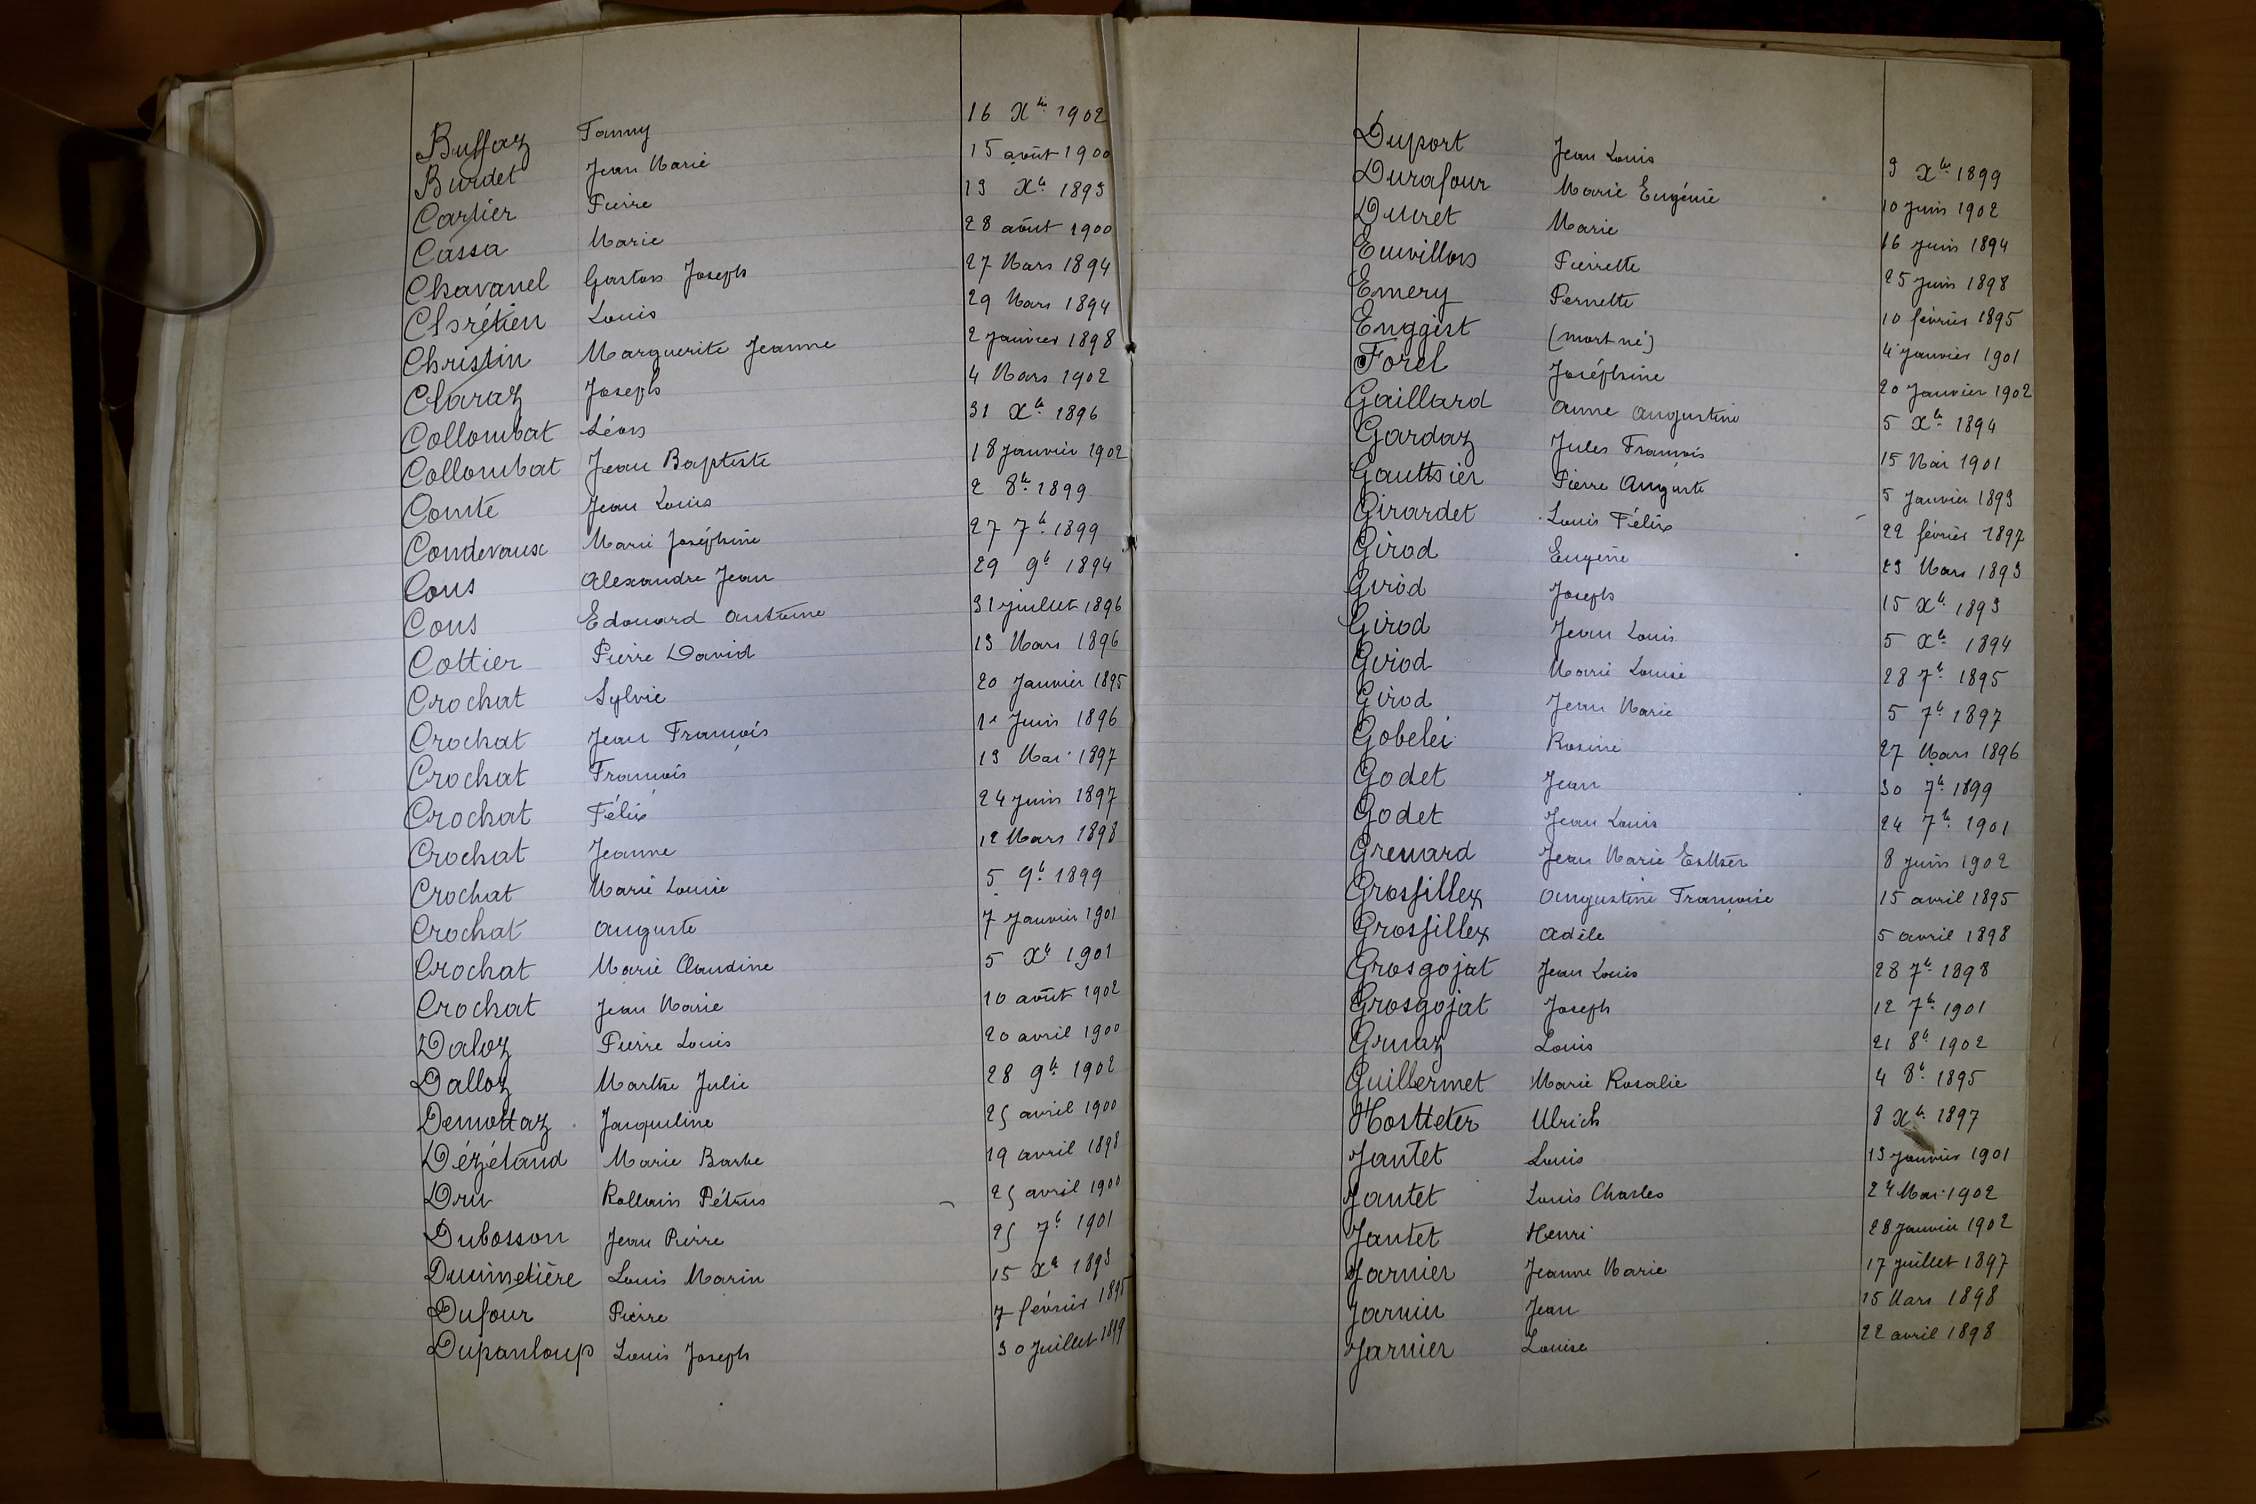 Buffaz Fanny 16 Xbre 1902
Burdet Jean Marie 15 août 1900
Cartier Pierre 13 Xb. 1893
Cassa Marie 28 août 1900
Chavanel Gaston Joseph 27 Mars 1894
Chrétien Louis 29 Mars 1894
Christin Marguerite Jeanne 2 Janvier 1898
Claraz Joseph 4 Mars 1902
Collombat Léon 31 Xb. 1896
Collombat Jean Baptiste 18 Janvier 1902
Comte Jean Louis 2 8b. 1899
Condevaux Marie Joséphine 27 7b. 1899
Cons Alexandre Jean 29 9b 1894
Cons Edouard Antoine 31 juillet 1896
Cottier Pierre David 13 Mars 1896
Crochat Sylvie 20 Janvier 1895
Crochat Jean François 1er Juin 1896
Crochat François 13 Mai 1897
Crochat Félix 24 Juin 1897
Crochat Jeanne 12 Mars 1898
Crochat Marie Louise 5 9b. 1899
Crochat Auguste 7 Janvier 1901
Crochat Marie Claudine 5 Xb 1901
Crochat Jean Marie 10 août 1902
Daloz Pierre Louis 20 avril 1900
Dalloz Marthe Julie 28 9b. 1902
Demottaz Jacqueline 25 avril 1900
Dézétaud Marie Barbe 19 avril 1898
Dru Rollain Pétrus 25 avril 1900
Dubosson Jean Pierre 25 7b 1901
Ducimetière Louis Marin 15 Xb 1893
Dufour Pierre 7 février 1895
Dupanloup Louis Joseph 30 Juillet 1899
Duport Jean Louis 9 Xbre 1899
Durafour Marie Eugénie 10 Juin 1902
Duret Marie 16 Juin 1894
Euvillons Pierrette 25 Juin 1898
Emery Pernette 10 février 1895
Enggist (mort né) 4 Janvier 1901
Forel Joséphine 20 Janvier 1902
Gaillard Anne Augustine 5 Xb. 1894
Gardaz Jules François 15 Mai 1901
Gauthier Pierre Auguste 5 Janvier 1893
Girardet Louis Félix 22 février 1897
Girod Eugène 23 Mars 1893
Girod Joseph 15 Xb. 1893
Girod Jean Louis 5 Xb. 1894
Girod Marie Louise 28 7b. 1895
Girod Jean Marie 5 7b. 1897
Gobelei Rosine 27 Mars 1896
Godet Jean 30 7b. 1899
Godet Jean Louis 24 7b. 1901
Grenard Jean Marie Esther 8 Juin 1902
Grosfillex Augustine Françoise 15 avril 1895
Grosfillex Adèle 5 avril 1898
Grosgojat Jean Louis 28 7b. 1898
Grosgojat Joseph 12 7b. 1901
Gruaz Louis 21 8b 1902
Guillermet Marie Rosalie 4 8b. 1895
Hostteter Ulrich 8 Xb. 1897
Jantet Louis 13 Janvier 1901
Jantet Louis Charles 24 Mai 1902
Jantet Henri 28 Janvier 1902
Jarnier Jeanne Marie 17 Juillet 1897
Jarnier Jean 15 Mars 1898
Jarnier Louise 22 avril 1898